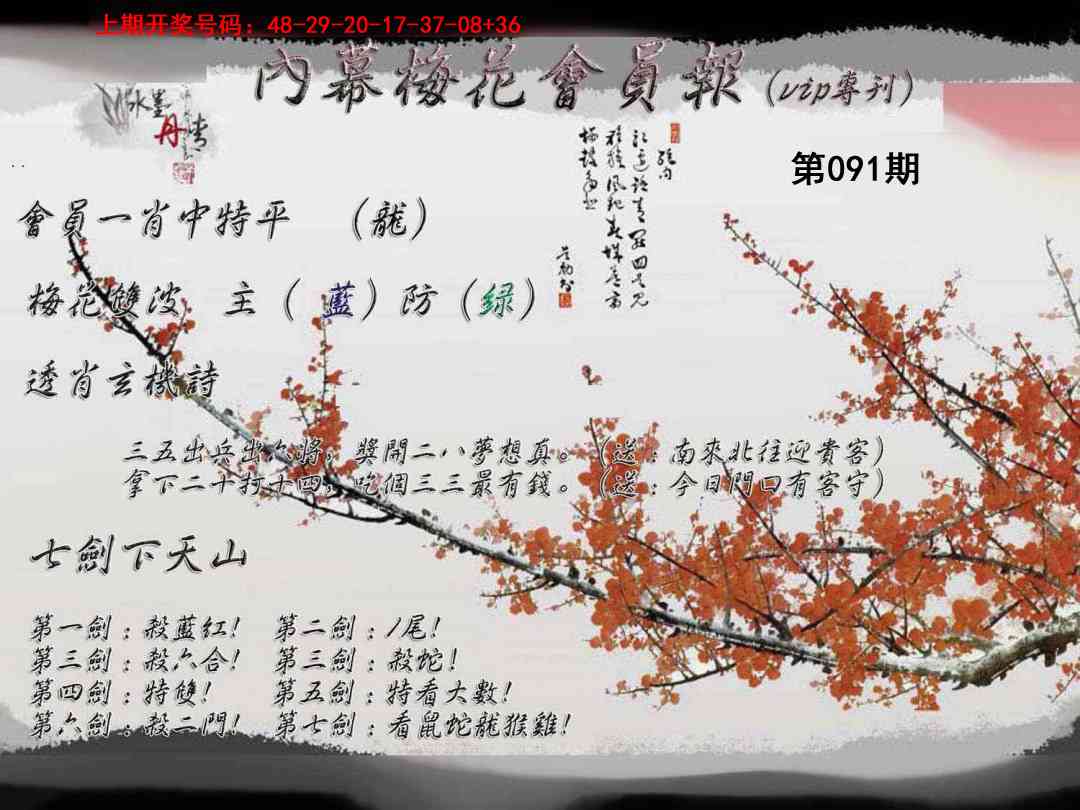 上期开奖号码：48-29-20-17-37-08+36
內幕梅花會員報（vip專刊）
水墨丹青
第091期
會員一肖中特平 （龍）
梅花雙波 主（藍）防（綠）
透肖玄機詩
三五出兵出六將，獎開二八夢想真。（送：南來北往迎貴客）
拿下二十打十四，吃個三三最有錢。（送：今日門口有客守）
七劍下天山
第一劍：殺藍紅！ 第二劍：1尾！
第三劍：殺六合！ 第三劍：殺蛇！
第四劍：特雙！ 第五劍：特看大數！
第六劍：殺二門！ 第七劍：看鼠蛇龍猴雞！